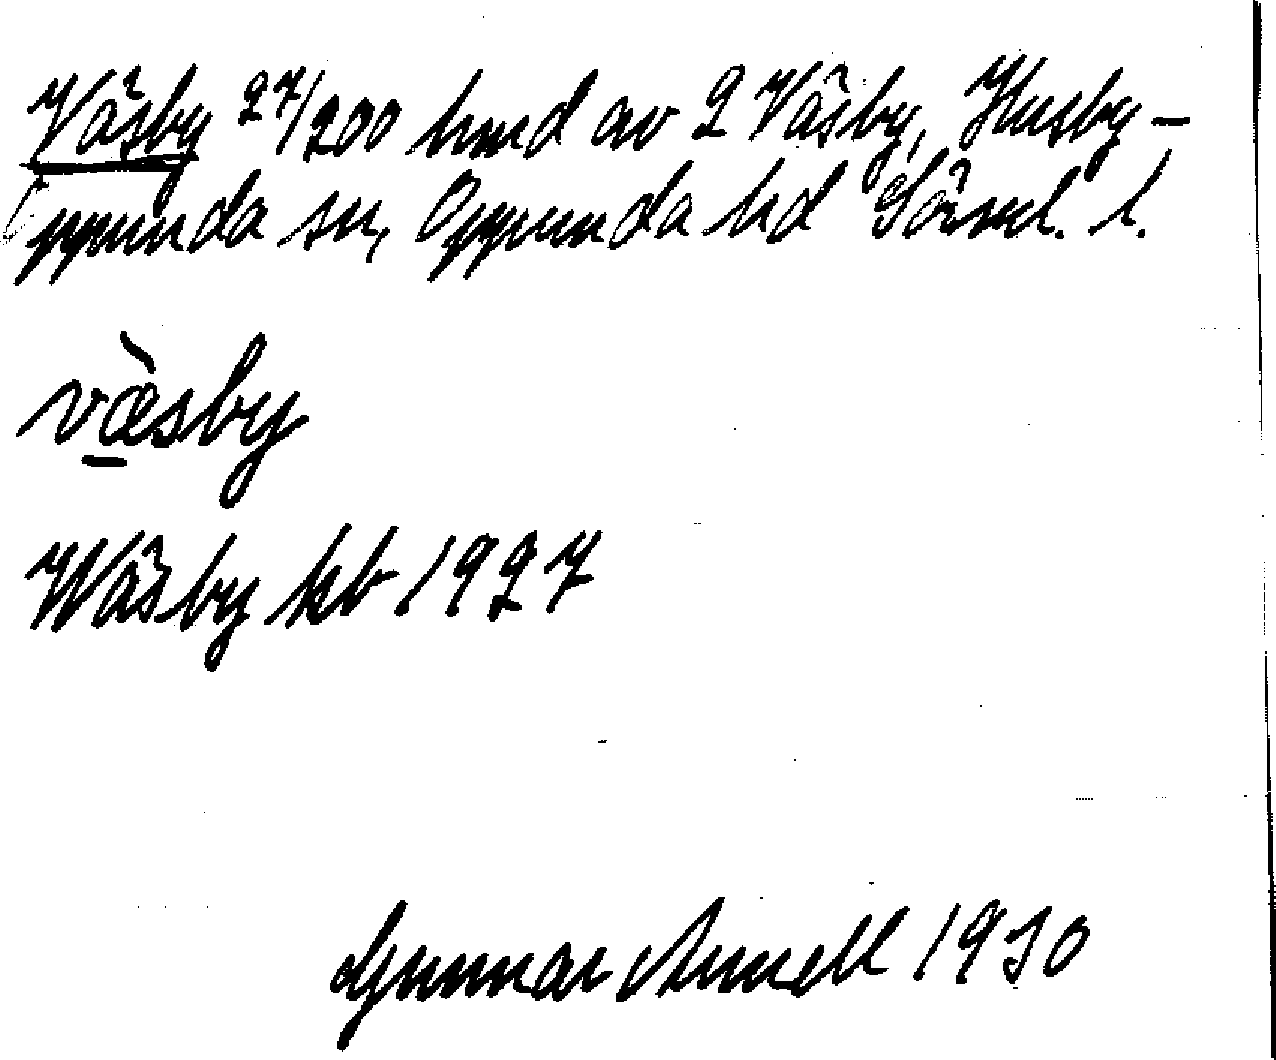 Väsby 27/200 hmd av 2 Väsby, Husby-
Oppunda sn, Oppunda hd Sörml. l.
væ̀sby
Wäsby kb 1927
Gunnar Arnell 1930